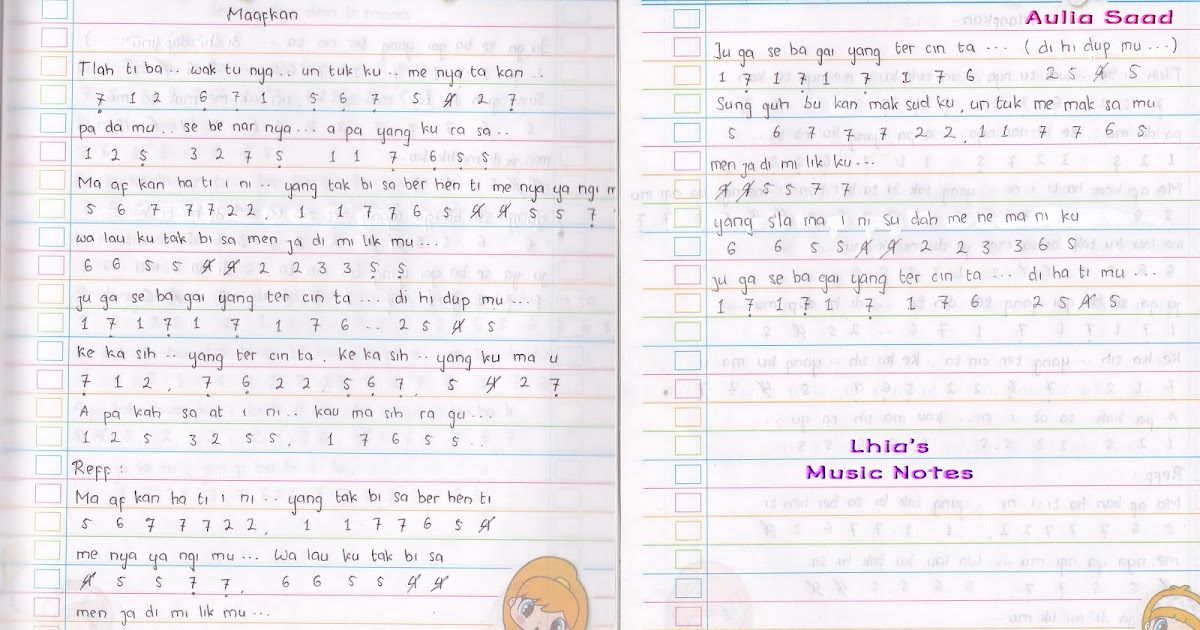 Maafkan
Tlah ti ba .. wak tu nya .. un tuk ku .. me nya ta kan ..
7 1 2 6 7 1 5 6 7 5 4 2 7
pa da mu .. se be nar nya ... a pa yang ku ra sa ..
1 2 5 3 2 7 5 1 1 7 6 5 5
Ma af kan ha ti i ni .. yang tak bi sa ber hen ti me nya ya ngi m
5 6 7 7 7 2 2 . 1 1 7 7 6 5 4 4 5 5 7
wa lau ku tak bi sa men ja di mi lik mu ...
6 6 5 5 4 4 2 2 3 3 5 5
ju ga se ba gai yang ter cin ta ... di hi dup mu ...
1 7 1 7 1 7 1 7 6 .. 2 5 4 5
Ke ka sih .. yang ter cin ta . ke ka sih .. yang ku ma u
7 1 2 . 7 6 2 2 . 5 6 7 . 5 4 2 7
A pa kah sa at i ni .. kau ma sih ra gu ..
1 2 5 3 2 5 5 , 1 7 6 5 5 ..
Reff :
Ma af kan ha ti i ni .. yang tak bi sa ber hen ti
5 6 7 7 7 2 2 , 1 1 7 7 6 5 4
me nya ya ngi mu ... wa lau ku tak bi sa
4 5 5 7 7 . 6 6 5 5 4 4
men ja di mi lik mu ...
Aulia Saad
Ju ga se ba gai yang ter cin ta ... ( di hi dup mu ...)
1 7 1 7 1 7 1 7 6 2 5 4 5
Sung guh bu kan mak sud ku , un tuk me mak sa mu
5 6 7 7 7 2 2 . 1 1 7 7 6 5
men ja di mi lik ku ...
4 4 5 5 7 7
yang s'la ma i ni su dah me ne ma ni ku
6 6 5 5 4 4 2 2 3 3 6 5
ju ga se ba gai yang ter cin ta ... di ha ti mu ...
1 7 1 7 1 7 1 7 6 2 5 4 5
Lhia's
Music Notes